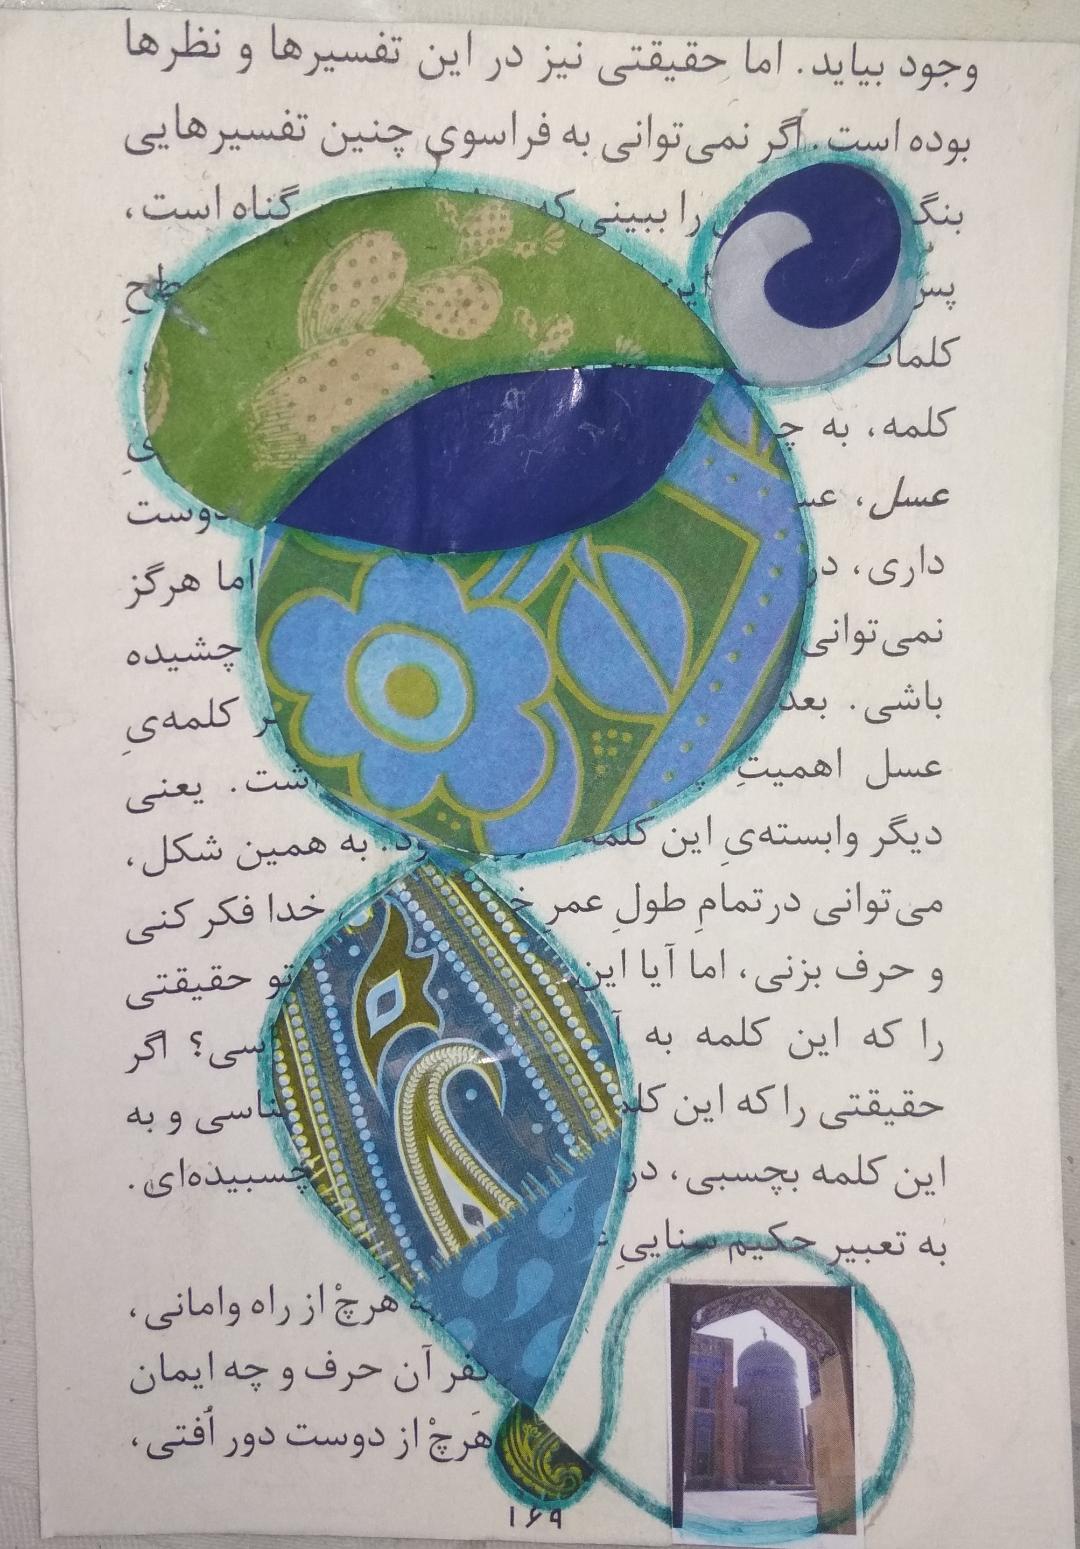 وجود بیاید. اما حقیقتی نیز در این تفسیرها و نظرها
بوده است. اگر نمی‌توانی به فراسویِ چنین تفسیرهایی
را ببینی که گناه است،
کلمه، به
عسل، دوست
داری، در اما هرگز
نمی‌توانی چشیده
باشی. بعد کلمه‌یِ
عسل اهمیتِ یعنی
دیگر وابسته‌یِ این به همین شکل،
می‌توانی در تمامِ طولِ عمرِ خدا فکر کنی
و حرف بزنی، اما آیا این تو حقیقتی
را که این کلمه به اگر
حقیقتی را که این و به
این کلمه بچسبی، در چسبیده‌ای.
به تعبیرِ حکیم سناییِ
هَرچْ از راه وامانی،
آن حرف و چه ایمان
هَرچْ از دوست دور اُفتی،
۱۶۹